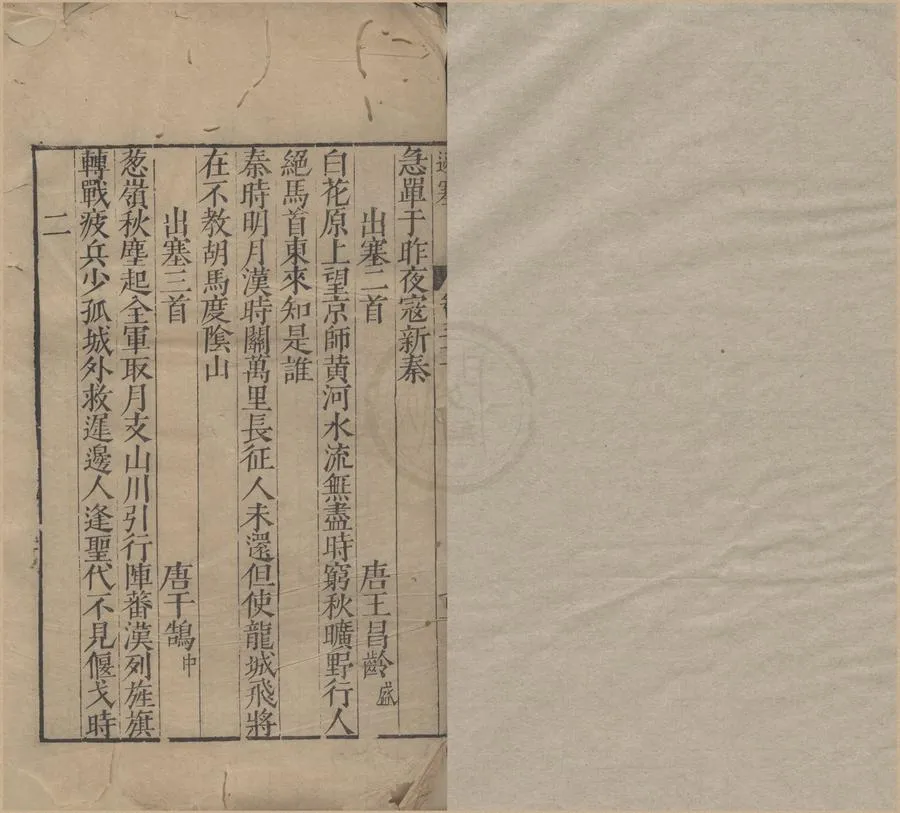 邊塞
急單于昨夜寇新秦
出塞二首 唐王昌齡 盛
白花原上望京師黄河水流無盡時窮秋曠野行人
絕馬首東來知是誰
秦時明月漢時關萬里長征人未還但使龍城飛將
在不教胡馬度陰山
出塞三首 唐于鵠 中
葱嶺秋塵起全軍取月支山川引行陣蕃漢列旌旗
轉戰疲兵少孤城外救遲邊人逢聖代不見偃戈時
二